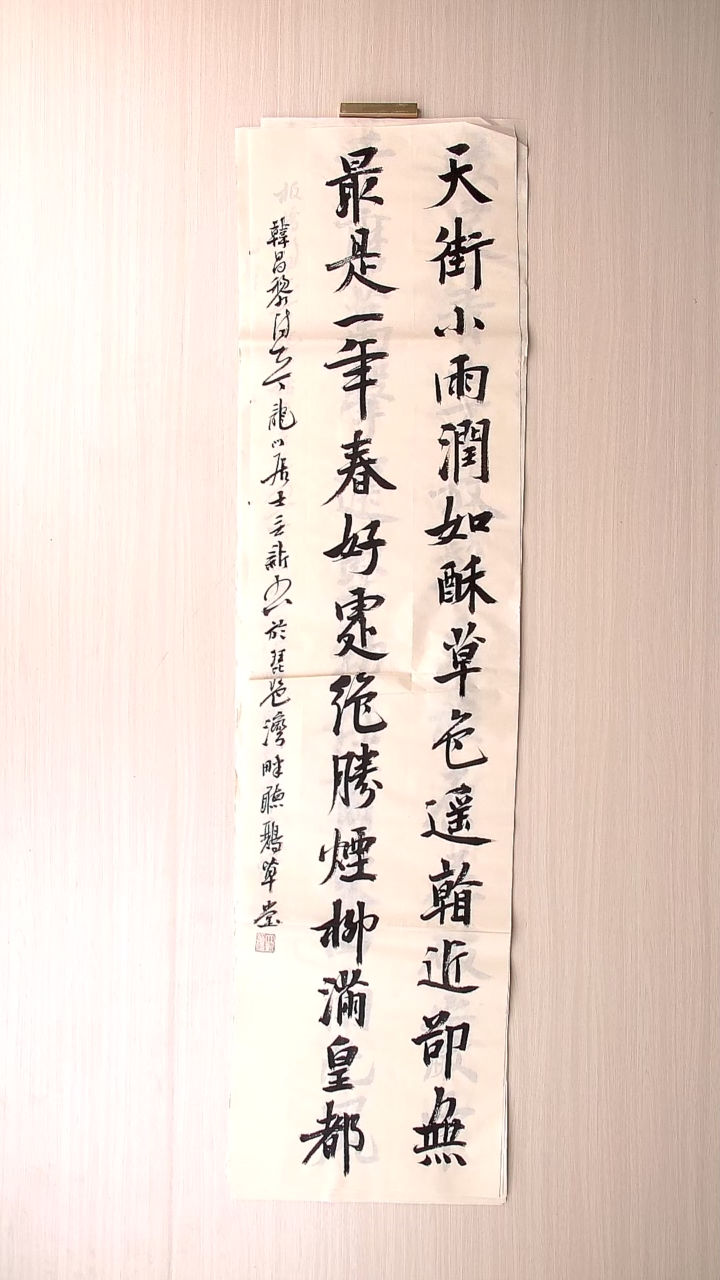 天街小雨潤如酥草色遥看近卻無
最是一年春好處絶勝煙柳滿皇都
韓昌黎詩 龍山居士 書於琵琶灣畔聽鵝草堂